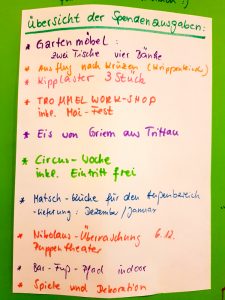 Übersicht der Spendenausgaben:
* Gartenmöbel:
zwei Tische vier Bänke
* Ausflug nach Krüzen (Krippenkirch)
* Kipplaster 3 Stück
* TROMMEL WORK-SHOP
inkl. Mai-Fest
* Eis von Griem aus Trittau
* Circus-Woche
inkl. Eintritt frei
* Matsch-Küche für den Außenbereich
-Lieferung: Dezember/Januar
* Nikolaus-Überraschung 6.12.
Puppentheater
* Bar-Fuß-Pfad indoor
* Spiele und Dekoration